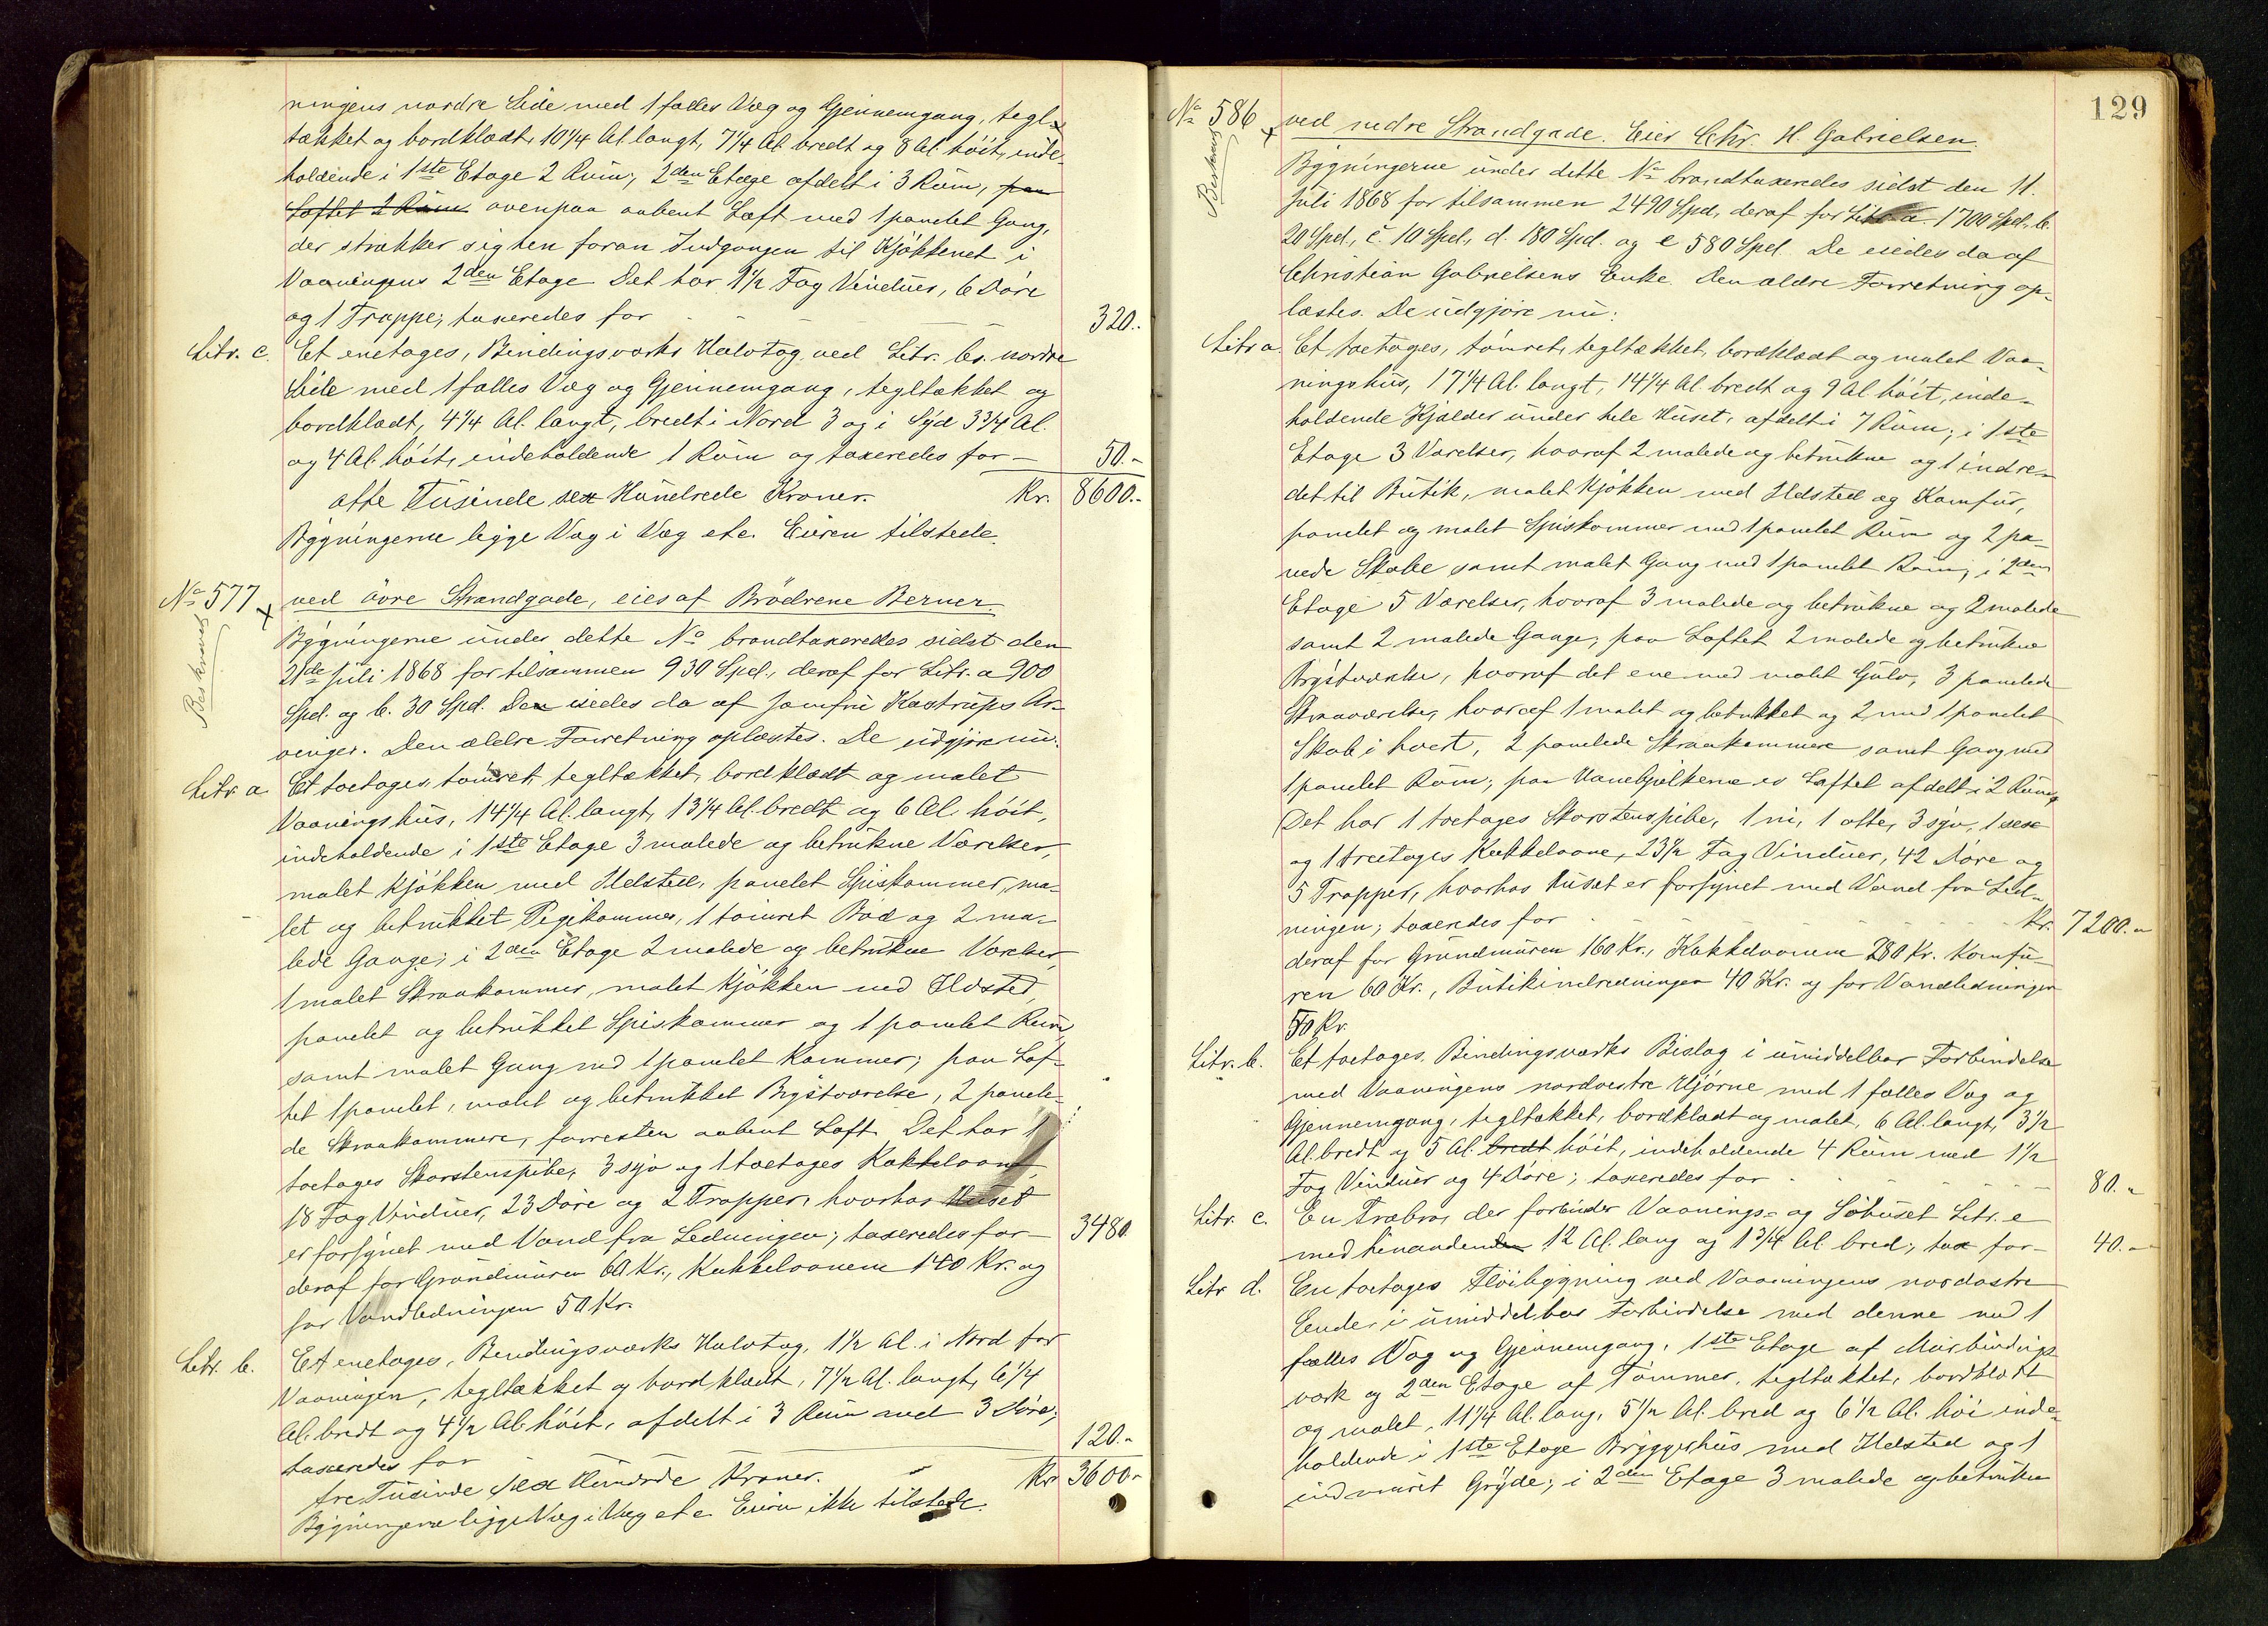 ningens nordre Side med 1 fælles Væg og Gjennemgang, tegl-
tækket og bordklædt, 10 1/4 Al. langt, 7 1/4 Al. bredt og 8 Al. höit, inde-
holdende i 1ste Etage 2 Rum, 2den Etage afdelt i 3 Rum, paa
Loftet 2 Rum ovenpaa aabent Loft med 1 panelet Gang,
der strækker sig hen foran Indgangen til Kjökkenet i
Vaaningens 2den Etage. Det har 9 1/2 Fag Vinduer, 6 Döre
og 1 Trappe; taxeredes for 320.-
Litr. c. Et enetages, Bindingsværks Halvtag ved Litr. b's nordre
Side med 1 fælles Væg og Gjennemgang, tegltækket og
bordklædt, 4 1/4 Al. langt, bredt i Nord 3 og i Syd 3 3/4 Al.
og 4 Al. höit, indeholdende 1 Rum og taxeredes for - 50.-
otte Tusinde sex Hundrede Kroner. Kr. 8600.-
Bygningerne ligge Væg i Væg etc. Eieren tilstede.
No 577 ved övre Strandgade, eies af Brödrene Berner.
Beskrevet
Bygningerne under dette No brandtaxeredes sidst den
21de Juli 1868 for tilsammen 930 Spd., deraf for Litr. a 900
Spd. og b. 30 Spd. De eiedes da af Jomfru Kastrups Ar-
vinger. Den ældre Forretning oplæstes. De udgjöre nu:
Litr. a Et toetages, tömret, tegltækket, bordklædt og malet
Vaaningshus, 14 1/4 Al. langt, 13 1/4 Al. bredt og 6 Al. höit,
indeholdende i 1ste Etage 3 malede og betrukne Værelser,
malet Kjökken med Ildsted, panelet Spiskammer, ma-
let og betrukket Pigekammer, 1 tömret Bod og 2 ma-
lede Gange; i 2den Etage 2 malede og betrukne Værelser,
1 malet Skraakammer, malet Kjökken med Ildsted,
panelet og betrukket Spiskammer og 1 panelet Rum
samt malet Gang med 1 panelet Kammer; paa Lof-
tet 1 panelet, malet og betrukket Brystværelse, 2 panele-
de Skraakammere, forresten aabent Loft. Det har 1
toetages Skorstenspibe, 3 syv og 1 toetages Kakkelovne,
18 Fag Vinduer, 23 Döre og 2 Trapper, hvorhos Huset
er forsynet med Vand fra Ledningen; taxeredes for 3480
deraf for Grundmuren 60 Kr., Kakkelovnene 140 Kr. og
for Vandledningen 50 Kr.
Litr. b. Et enetages, Bindingsværks Halvtag, 1 1/2 Al. i Nord for
Vaaningen, tegltækket og bordklædt, 7 1/2 Al. langt, 6 1/4
Al. bredt og 4 1/2 Al. höit, afdelt i 3 Rum med 3 Döre,
taxeredes for 120.-
tre Tusinde sex Hundrede Kroner. Kr. 3600.-
Bygningerne ligge Væg i Væg etc. Eieren ikke tilstede.
129
No 586 ved nedre Strandgade. Eier Chr. H. Gabrielsen.
Beskrevet
Bygningerne under dette No brandtaxeredes sidst den 11.
Juli 1868 for tilsammen 2490 Spd., deraf for Litr. a 1700 Spd., b.
20 Spd., c. 10 Spd., d. 180 Spd. og e 580 Spd. De eiedes da af
Christian Gabrielsens Enke. Den ældre Forretning op-
læstes. De udgjöre nu:
Litr a. Et toetages, tömret, tegltækket, bordklædt og malet Vaa-
ningshus, 17 1/4 Al. langt, 14 1/4 Al. bredt og 9 Al. höit, inde-
holdende Kjælder under hele Huset, afdelt i 7 Rum; i 1ste
Etage 3 Værelser, hvoraf 2 malede og betrukne og 1 indre-
det til Butik, malet Kjökken med Ildsted og Komfur,
panelet og malet Spiskammer med 1 panelet Rum og 2 pa-
nede Skabe samt malet Gang med 1 panelet Rum; i 2den
Etage 5 Værelser, hvoraf 3 malede og betrukne og 2 malede
samt 2 malede Gange; paa Loftet 2 malede og betrukne
Brystværelse, hvoraf det ene med malet Gulv, 3 panelede
Skraaværelser, hvoraf 1 malet og betrukket og 2 med 1 panelet
Skab i hvert, 2 panelede Skraakammere samt Gang med
1 panelet Rum; paa Hanebjelkerne er Loftet afdelt i 2 Rum.
Det har 1 toetages Skorstenspibe, 1 ni, 1 otte, 3 syv, 1 sex
og 1 treetages Kakkelovne, 23 1/2 Fag Vinduer, 42 Döre og
5 Trapper, hvorhos Huset er forsynet med Vand fra Led-
ningen; taxeredes for Kr. 7200.-
deraf for Grundmuren 160 Kr., Kakkelovnene 280 Kr. Komfu-
ren 60 Kr., Butikindredningen 40 Kr. og for Vandledningen
50 Kr.
Litr. b. Et toetages, Bindingsværks Bislag i umiddelbar Forbindelse
med Vaaningens nordvestre Hjörne med 1 fælles Væg og
Gjennemgang, tegltækket, bordklædt og malet, 6 Al. langt, 3 1/2
Al. bredt og 5 Al. bredt höit, indeholdende 4 Rum med 1 1/2
Fag Vinduer og 4 Döre; taxeredes for 80.-
Litr. c. En Træbro, der forbinder Vaanings- og Söhuset Litr. e
med hinanden 12 Al. lang og 1 3/4 Al. bred; tax for - 40.-
Litr d. En toetages Flöibygning ved Vaaningens nordöstre
Ende i umiddelbar Forbindelse med denne med 1
fælles Væg og Gjennemgang, 1ste Etage af Murbindings-
værk og 2den Etage af Tömmer, tegltækket, bordklædt
og malet, 11 1/4 Al. lang, 5 1/2 Al. bred og 6 1/2 Al. höi inde-
holdende i 1ste Etage Bryggerhus med Ildsted og 1
indmuret Gryde; i 2den Etage 3 malede og betrukne